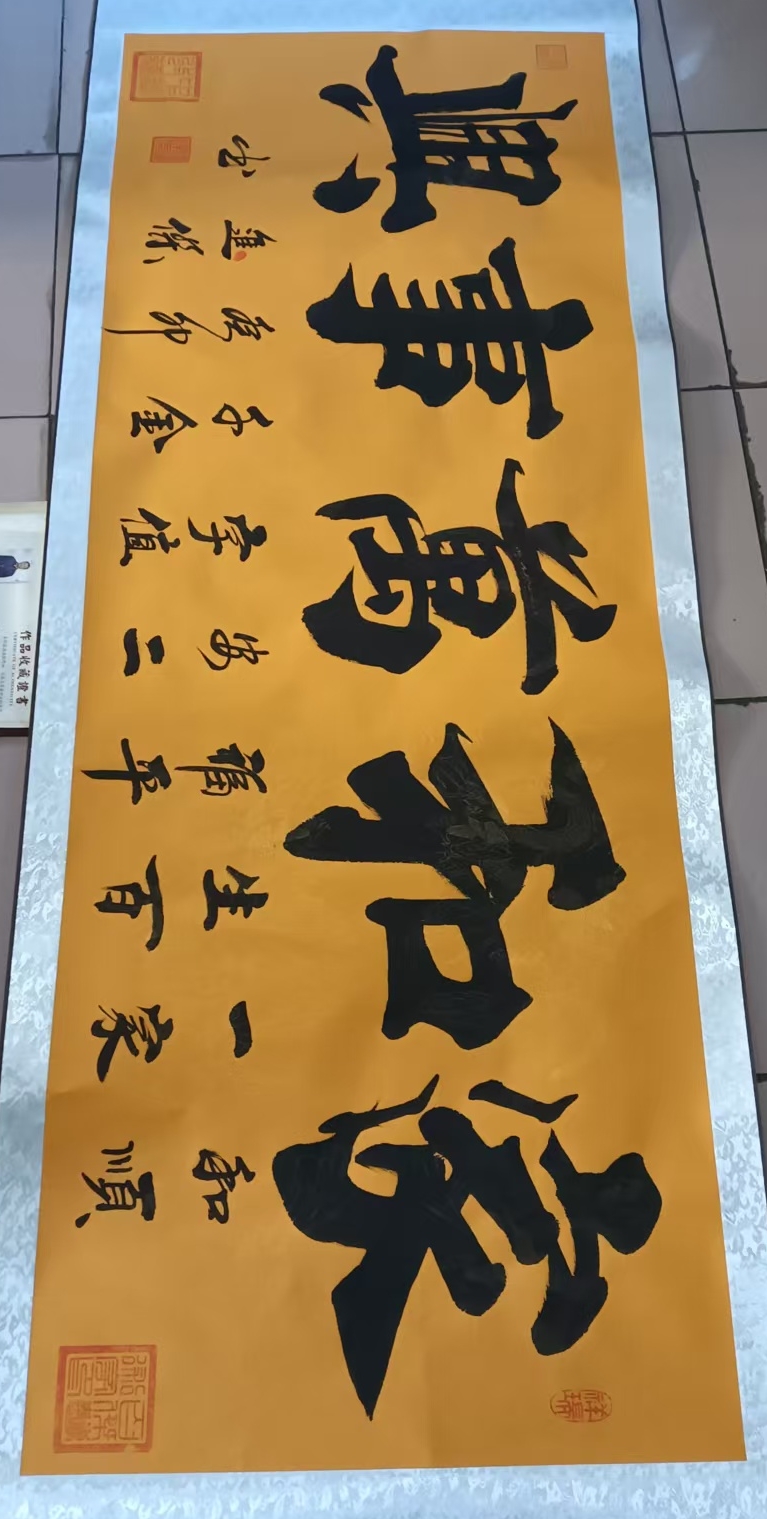 家和萬事興
和順
一家
生百
福平
安二
字值
千金
癸卯
進傑
書
祥瑞
作品收藏證書